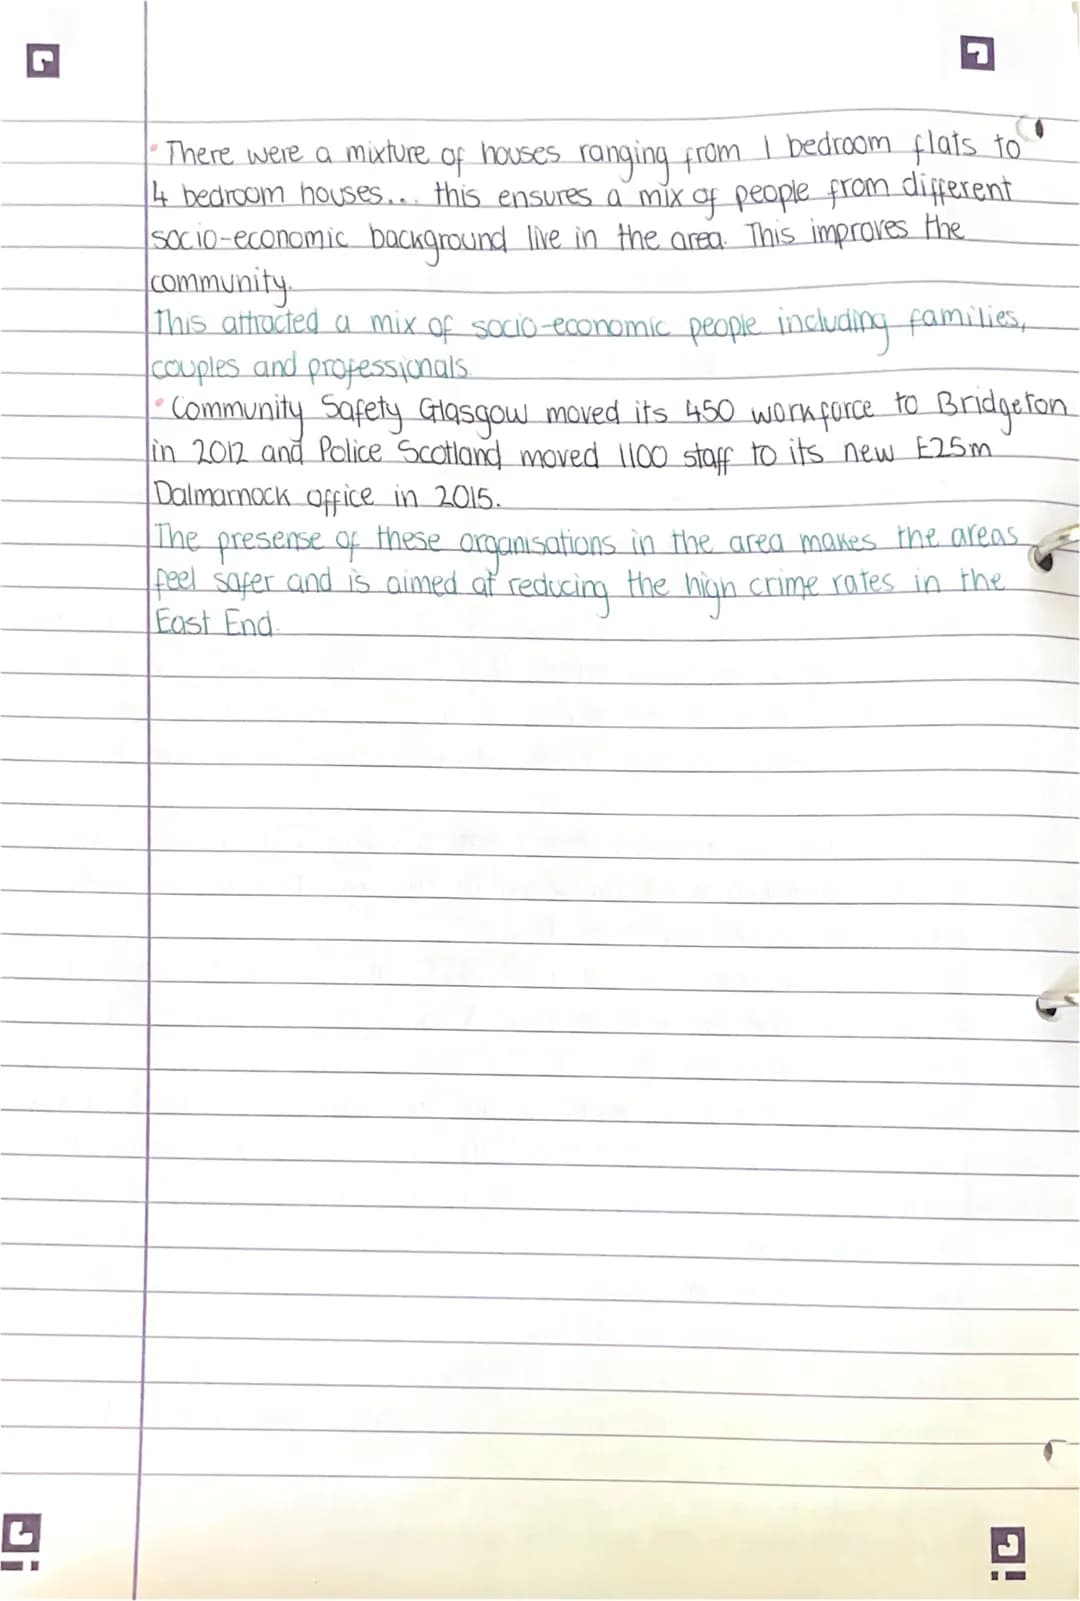 • There were a mixture of houses ranging from 1 bedroom flats to
4 bedroom houses... this ensures a mix of people from different
socio-economic background live in the area. This improves the
community.
This attracted a mix of socio-economic people including families,
couples and professionals.
• Community Safety Glasgow moved its 450 workforce to Bridgeton
in 2012 and Police Scotland moved 1100 staff to its new £25m
Dalmarnock office in 2015.
The presense of these organisations in the area makes the areas
feel safer and is aimed at reducing the high crime rates in the
East End.